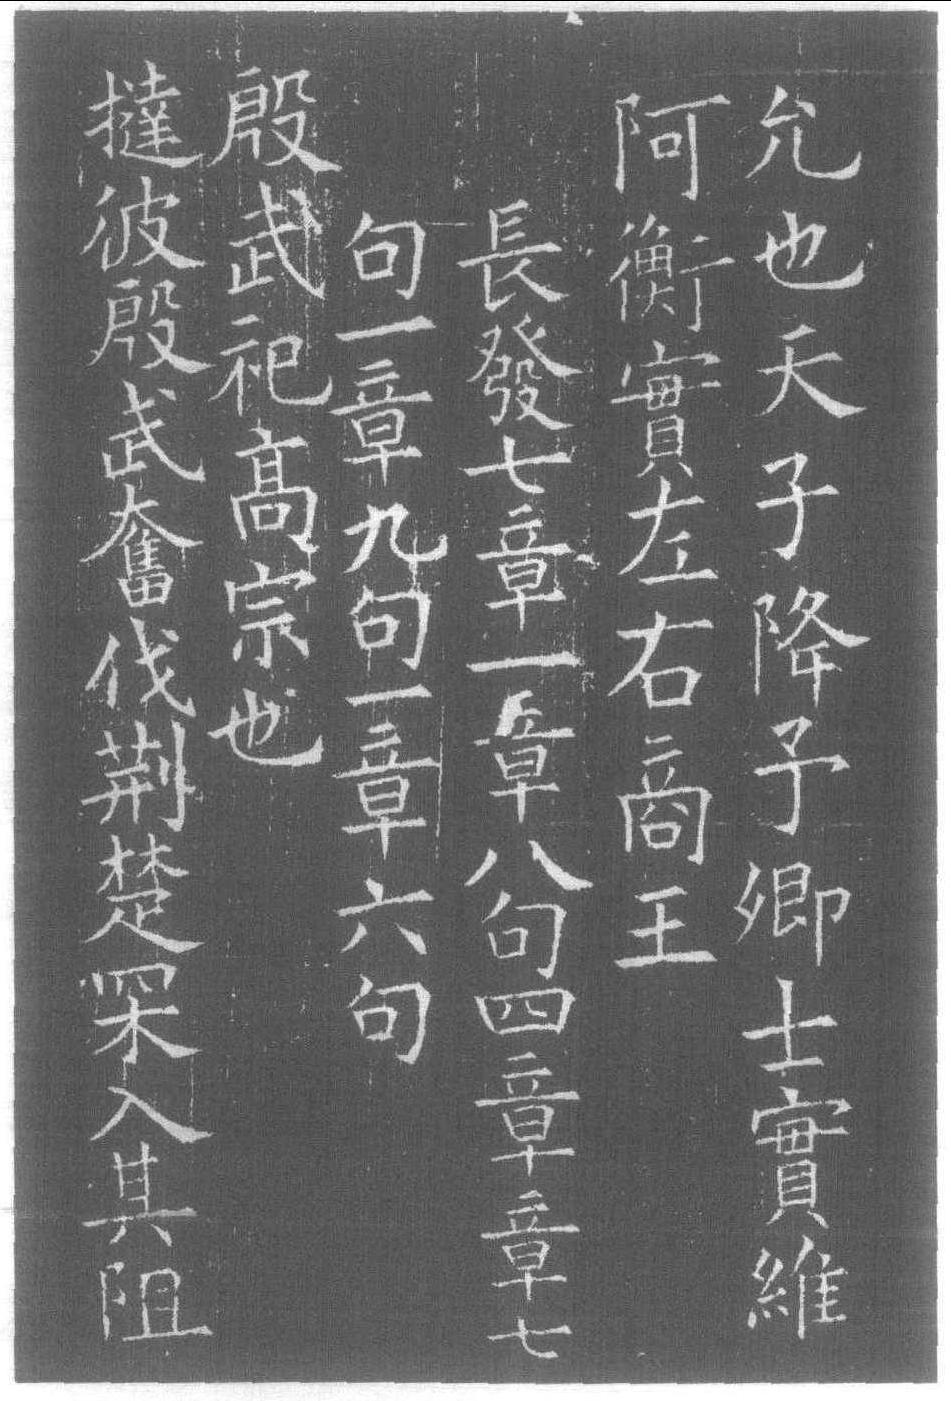 允也天子降予卿士實維
阿衡實左右商王
長發七章一章八句四章章七
句一章九句一章六句
殷武祀髙宗也
撻彼殷武奮伐荆楚罙入其阻